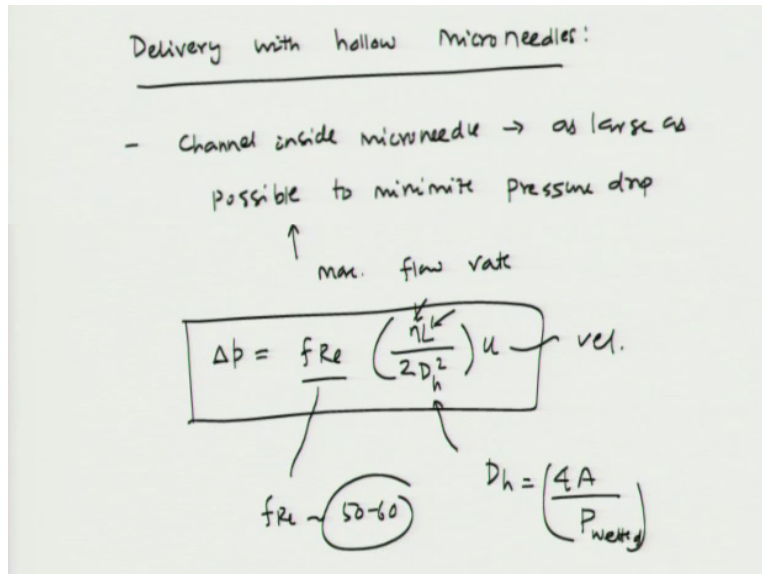 Delivery with hollow microneedles:
- Channel inside microneedle → as large as
possible to minimize pressure drop
↑
max. flow rate
Δp = fRe (ηL / 2D_h^2) u — vel.
fRe ~ 50-60
D_h = (4A / P_wetted)